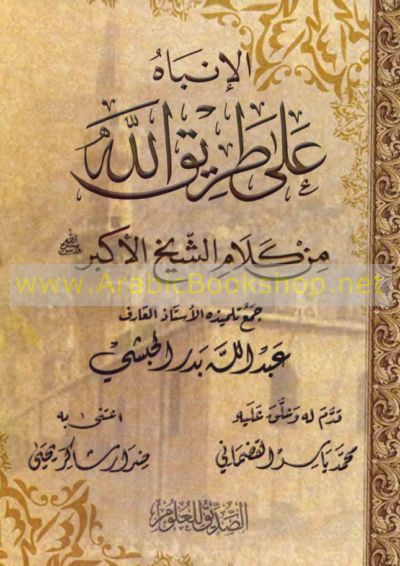 الإنباه
على طريق الله
من كلام الشيخ الأكبر
www.ArabicBookshop.net
جمع تلميذه الأستاذ العارف
عبد الله بدر الحبشي
قدم له وعلق عليه
محمد ياسر القضماني
اعتنى به
ضرار شاكر يحيى
الصديق للعلوم